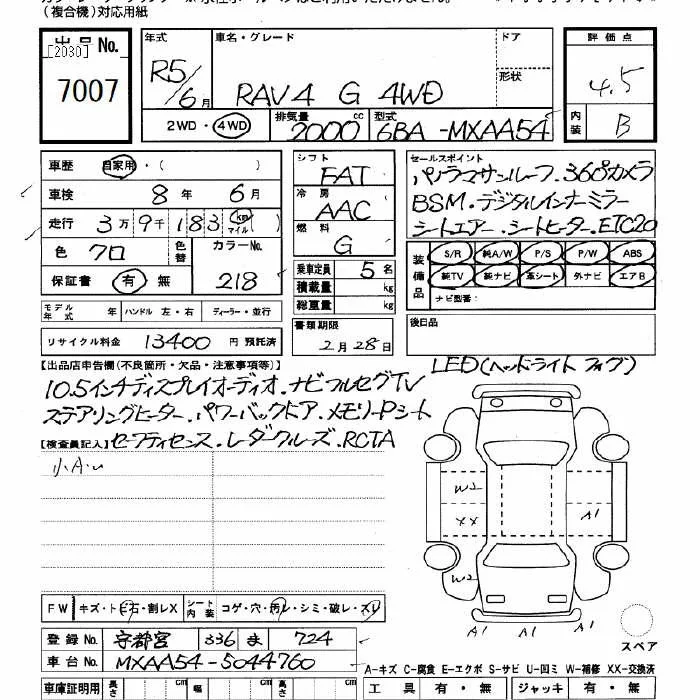 (複合機)対応用紙
出品 No.
[2030]
7007
年式
R5/6月
車名・グレード
RAV4 G 4WD
ドア
形状
2WD・4WD
排気量
2000 cc
型式
6BA-MXAA54
評価点
4.5
内装
B
車歴 自家用・( )
車検 8年 6月
走行 3万9千183 km マイル ( )
色 クロ 色替 カラーNo.
保証書 有 無 218
シフト
FAT
冷房
AAC
燃料
G
乗車定員 5名
積載量 kg
総重量 kg
セールスポイント
パノラマサンルーフ・360°カメラ
BSM・デジタルインナーミラー
シートエアー・シートヒーター・ETC2.0
装備品
S/R 純A/W P/S P/W ABS
純TV 純ナビ 革シート 外ナビ エアB
ナビ型番:
モデル年式 年 ハンドル 左・右 ディーラー・並行
書類期限
2月28日
後日品
リサイクル料金 13400 円 預託済
LED(ヘッドライト フォグ)
【出品店申告欄(不良箇所・欠品・注意事項等)】
10.5インチディスプレイオーディオ・ナビフルセグTV
ステアリングヒーター・パワーバックドア・メモリーPシート
【検査員記入】セーフティセンス・レーダクルーズ・RCTA
小A・U
W2
XX
A1
W2
A1 A1 A1
FW キズ・トビ石・割レX シート内装 コゲ・穴・汚レ・シミ・破レ・スレ
スペア
登録No. 宇都宮 336 ま 724
車台No. MXAA54-5044760
A-キズ C-腐食 E-エクボ S-サビ U-凹ミ W-補修 XX-交換済
車庫証明用 長さ cm 幅 cm 高さ cm
工具 有・無 ジャッキ 有・無